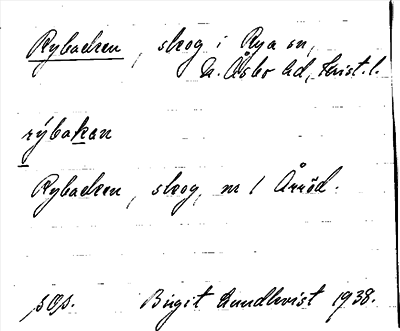 Rybacken, skog i Rya sn,
N. Åsbo hd, Krist. l.
rýbakan
Rybacken, skog, nr 1 Årröd.
sOp. Birgit Lundkvist 1938.